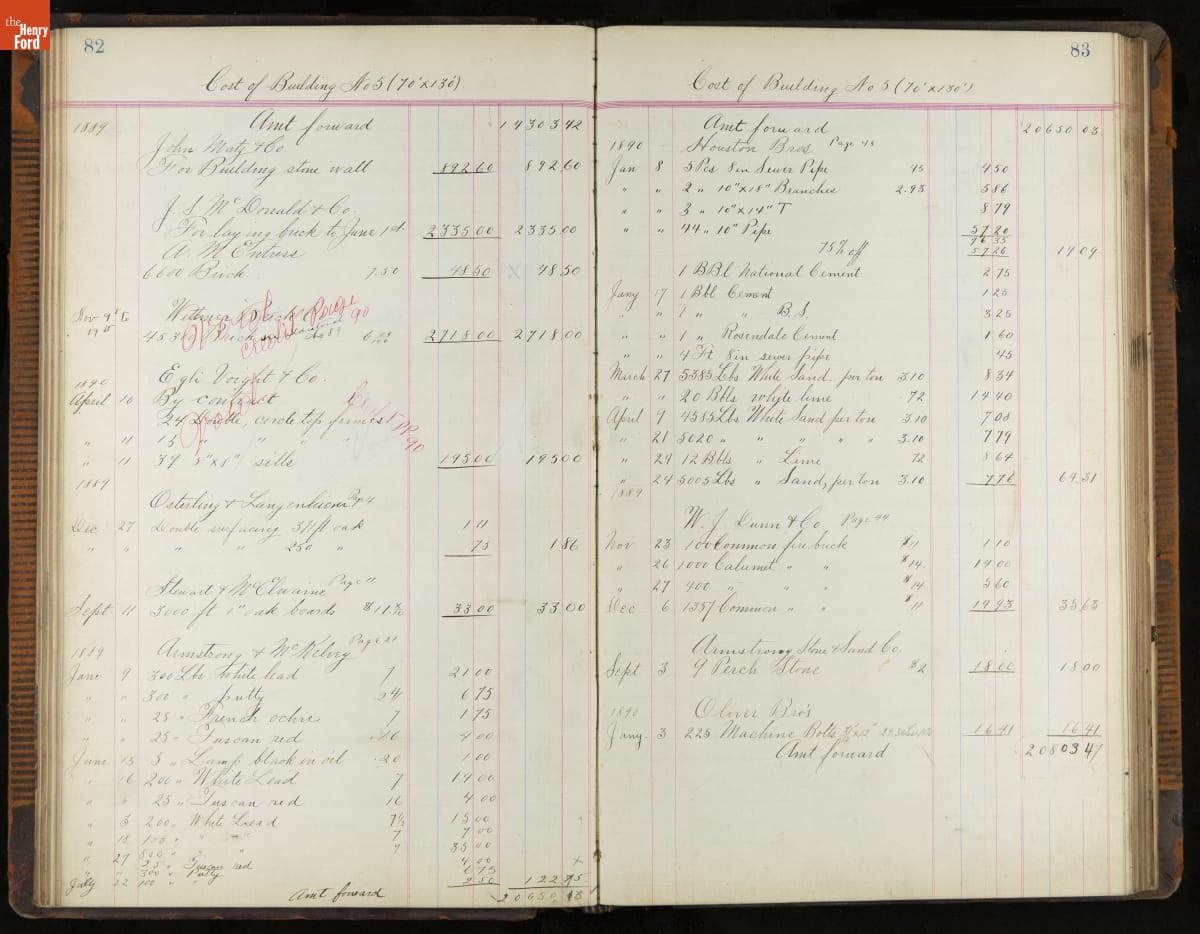 the
Henry
Ford
82
Cost of Building No 5 (70'x130')
1889 Amt forward 14303 42
John Matz & Co.
For Building stone wall 892.60 892.60
J S McDonald & Co.
For laying brick to June 1st. 2335.00 2335.00
A. M. Entress
6600 Brick 7.50 48.50 x 48.50
Nov 9th to Brick
19th Brick 2718.00 2718.00
90
Egli Voight & Co.
1890
April 10 By contract
24 Double, circle top
" 11 15 " " " " 90
" 11 39 5"x8" sills 195.00 195.00
1889
Osterling & Langenheiser
Dec. 27 Double surfacing ft oak 1 11
" " " " 250 " 75 1.86
Stewart & McElwaine Page 11
Sept 11 3000 ft 1" oak boards $11 33.00 33.00
1889 Armstrong & McKelvy Page 21
June 9 300 Lbs White lead 7 21 00
" " 300 " putty 2 1/4 6 75
" " 25 " French ochre 7 1 75
" " 25 " Tuscan red .16 4 00
June 13 5 " Lamp black in oil .20 1 00
" 16 200 " White Lead 7 14 00
" " 25 " Tuscan red 16 4 00
" 3 200 " White Lead 7 1/2 15 00
" 18 100 " " " 7 7 00
" 27 500 " " " 7 35 00
" " 25 " Tuscan red 4 00
" " 300 " Putty 6 75
July 22 100 " " 2 50 122 75
Amt forward 20650
83
Cost of Building No 5 (70'x130')
Amt forward 20650 03
1890 Houston Bros Page 48
Jan 8 5 Pcs 8 in Sewer Pipe 45 4 50
" " 2 " 10"x18" Branches 2.93 5 86
" " 3 " 10"x14" T 8 79
" " 44 " 10" Pipe 57 20
76 35
75% off 57 26 19 09
1 BBl National Cement 2 75
Jany 17 1 Bbl Cement 1 25
" " 1 " " B.S. 3 25
" " 1 " Rosendale Cement 1 60
" " 4 Ft 8 in sewer pipe 45
March 27 5385 Lbs White Sand, per ton 3.10 8 34
" " 20 Bbls whyte lime 72 14 40
April 9 4585 Lbs White Sand per ton 3.10 7 08
" 21 5020 " " " " " 3.10 7 79
" 24 12 Bbls " Lime 72 8 64
" 24 5005 Lbs " Sand, per ton 3.10 7 76 64.31
1889
W. J. Dunn & Co. Page 44
Nov 23 100 Common fire brick $11 1 10
" 26 1000 Calumet " " $14. 14 00
" 27 400 " " " $14. 5 60
Dec 6 1357 Common " " $11 14.93 35.63
Armstrong Stone & Sand Co.
Sept 3 9 Perch Stone $2 18.00 18 00
1890 Oliver Bro's
Jany. 3 225 Machine Bolts 16.41 16.41
Amt forward 20803 47